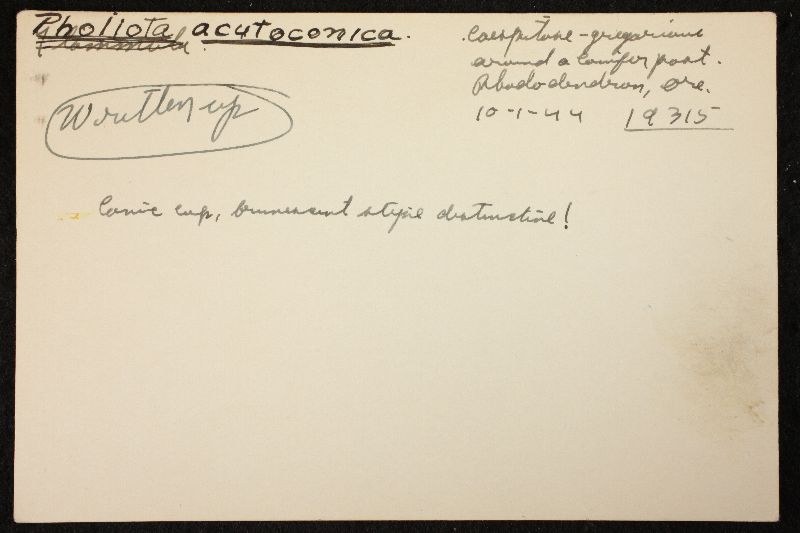 Pholiota acutoconica.
Flammula.
Caespitose-gregarious
around a conifer post.
Rhododendron, Ore.
10-1-44 19315
Written up
Conic cap, brunnescent stipe distinctive!